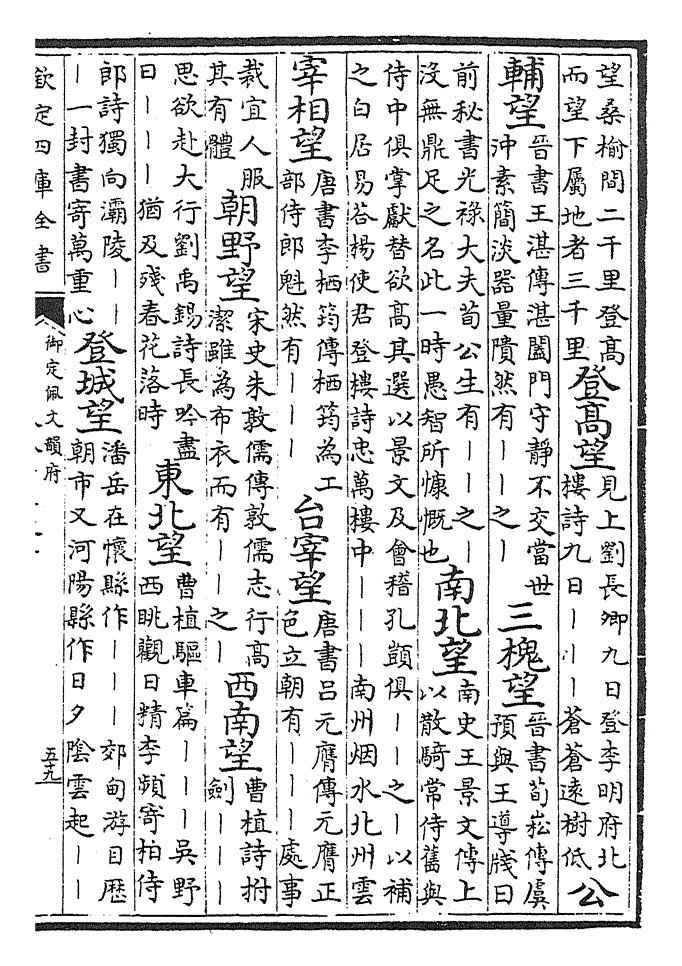 望桑榆間二千里登高
而望下屬地者三千里
登高望
見上劉長卿九日登李明府北
樓詩九日｜｜｜蒼蒼遠樹低
公
輔望
晉書王湛傳湛闔門守靜不交當世
沖素簡淡器量隤然有｜｜之｜
三槐望
晉書荀崧傳虞
預與王導牋曰
前秘書光祿大夫荀公生有｜｜之｜
沒無鼎足之名此一時愚智所慷慨也
南北望
南史王景文傳上
以散騎常侍舊與
侍中俱掌獻替欲高其選以景文及會稽孔顗俱｜｜之｜以補
之白居易荅楊使君登樓詩忠萬樓中｜｜｜南州烟水北州雲
宰相望
唐書李栖筠傳栖筠為工
部侍郎魁然有｜｜｜
台宰望
唐書呂元膺傳元膺正
色立朝有｜｜｜處事
裁宜人服
其有體
朝野望
宋史朱敦儒傳敦儒志行高
潔雖為布衣而有｜｜之｜
西南望
曹植詩拊
劍｜｜｜
思欲赴大行劉禹錫詩長吟盡
日｜｜｜猶及殘春花落時
東北望
曹植驅車篇｜｜｜吳野
西眺觀日精李頻寄柏侍
郎詩獨向灞陵｜｜
｜一封書寄萬重心
登城望
潘岳在懷縣作｜｜｜郊甸游目歷
朝市又河陽縣作日夕陰雲起｜｜｜
欽定四庫全書
御定佩文韻府
五九